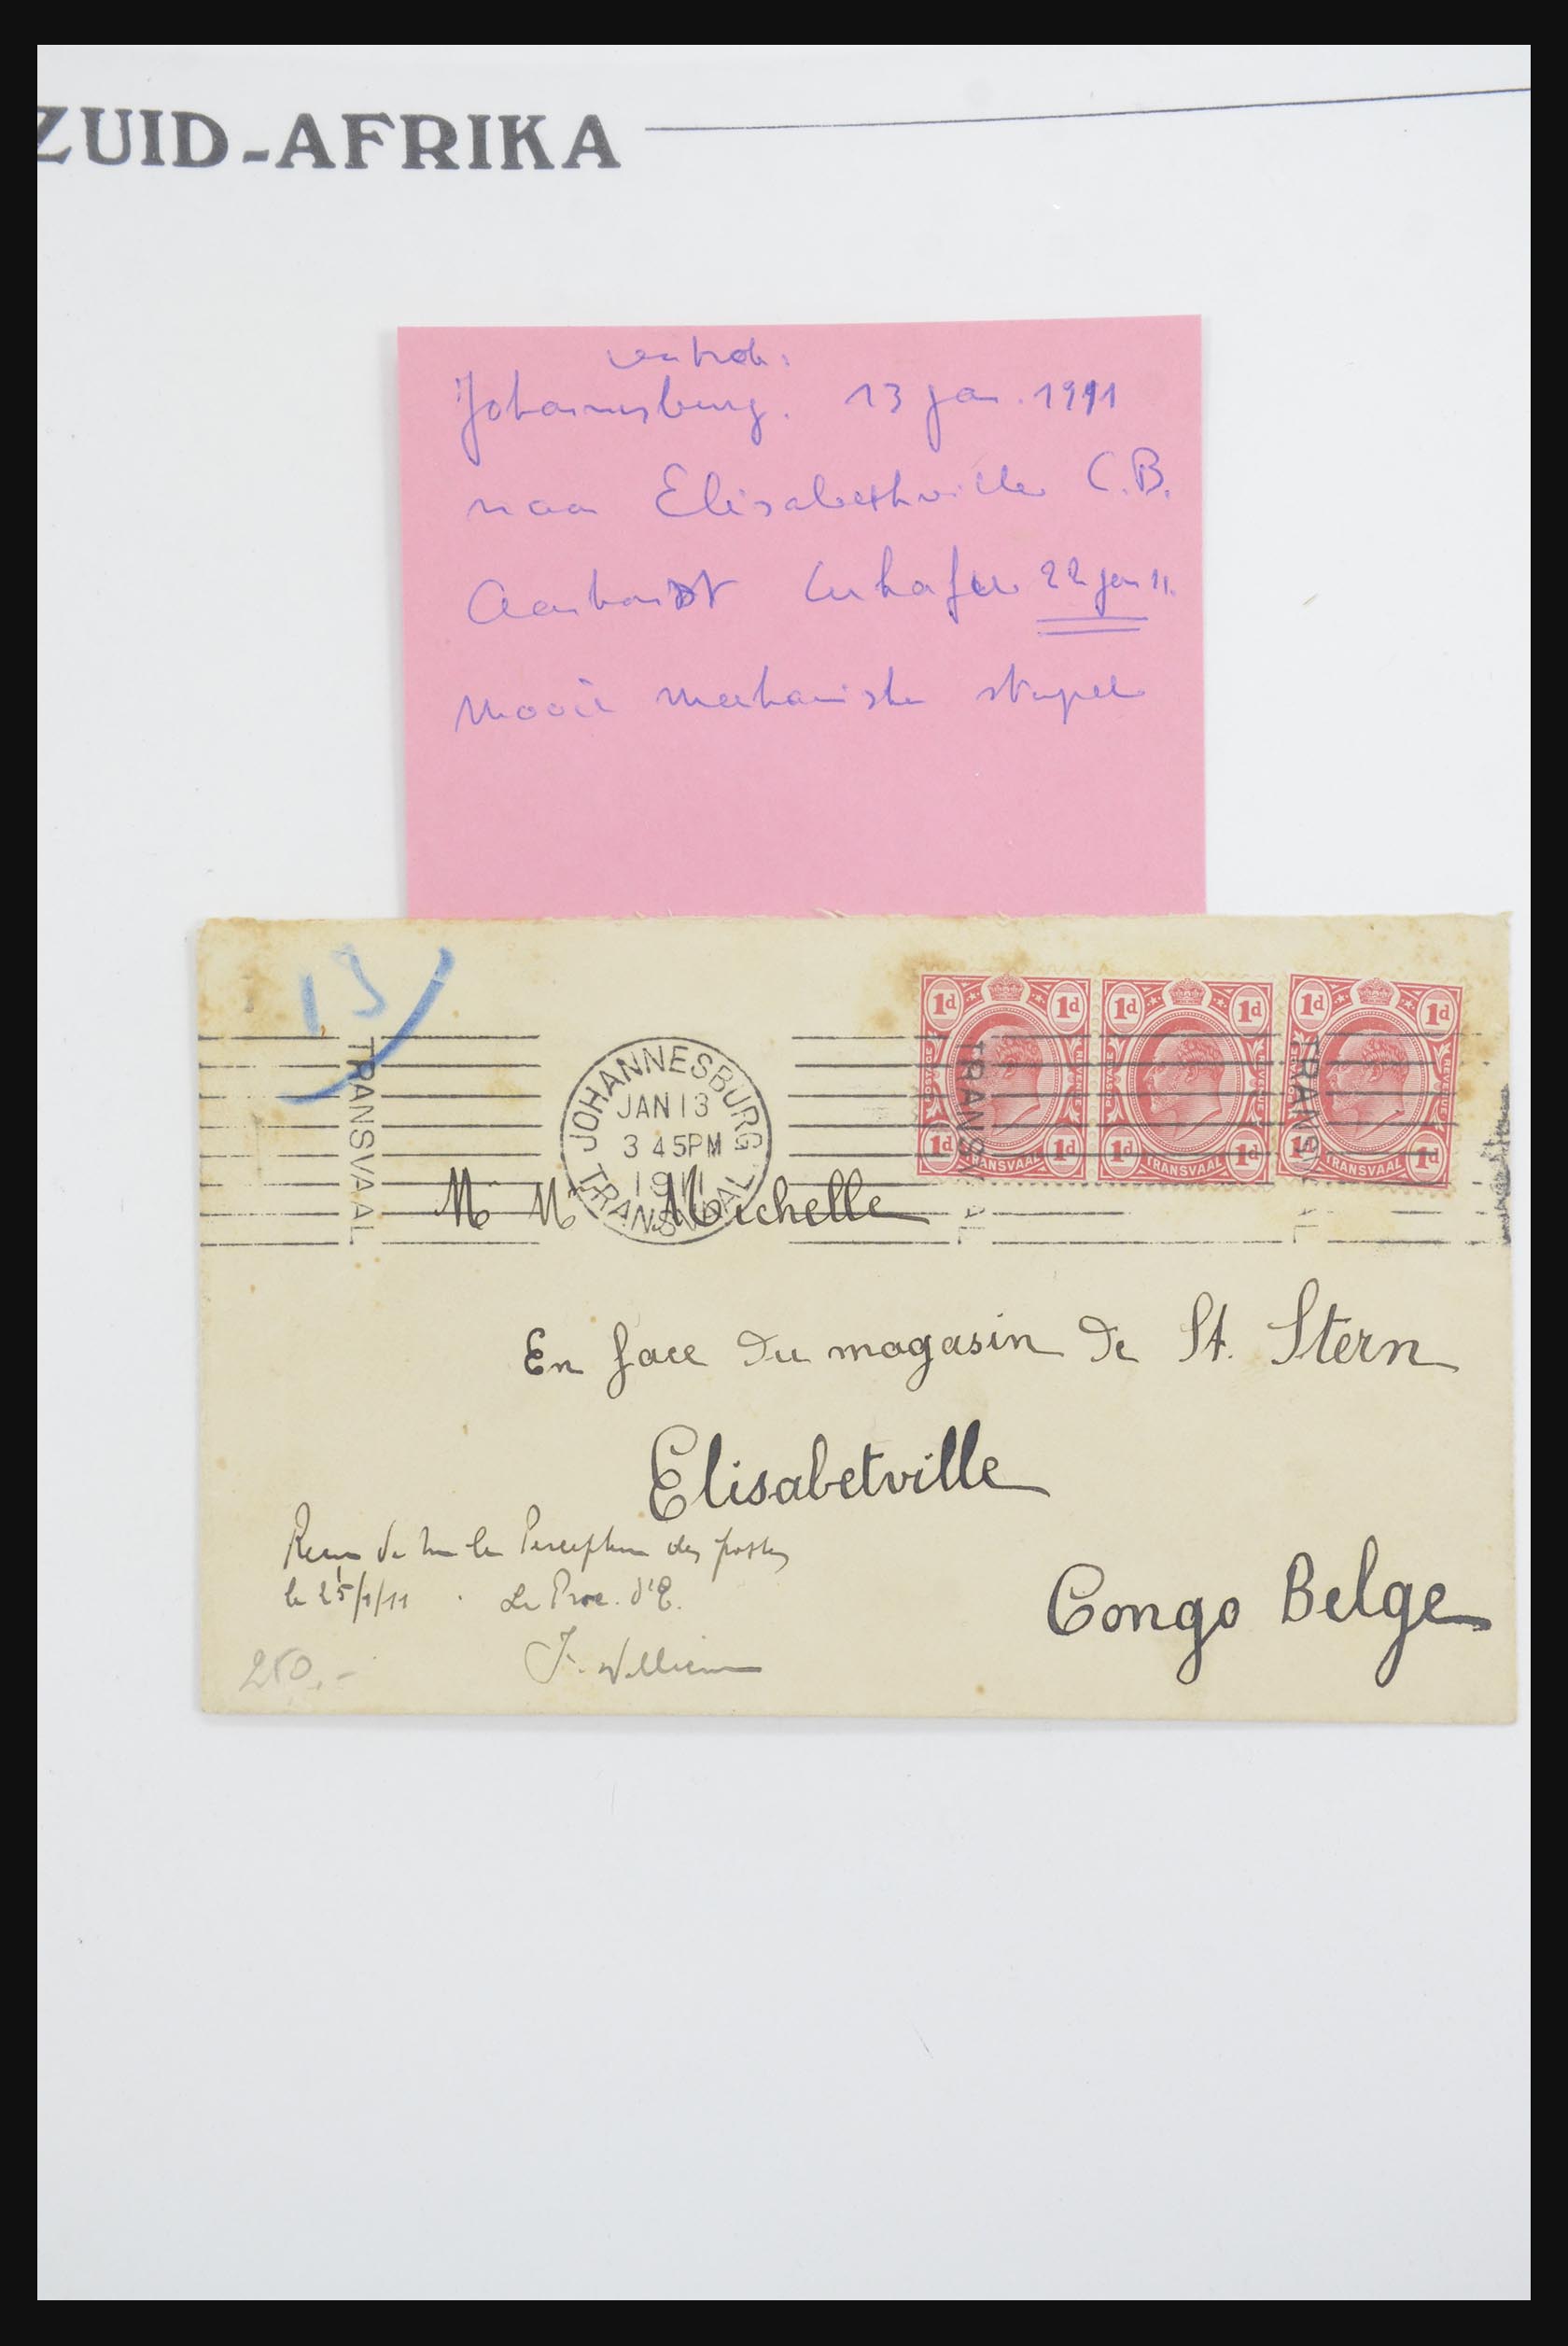 ZUID-AFRIKA
vertrek:
Johannesburg. 13 jan. 1911
naar Elisabethville C.B.
Aankomst 22 jan 11.
Mooie mechanische stempel
13
1d 1d 1d 1d 1d 1d
TRANSVAAL
JOHANNESBURG
JAN 13
3 45PM
1911
TRANSVAAL
TRANSVAAL
TRANSVAAL
1d 1d 1d 1d 1d 1d
TRANSVAAL TRANSVAAL TRANSVAAL
M M Michelle
En face du magasin de St. Stern
Elisabetville
Congo Belge
de la Perception des postes
le 25/1/11 . Le Proc. d'E.
250.-